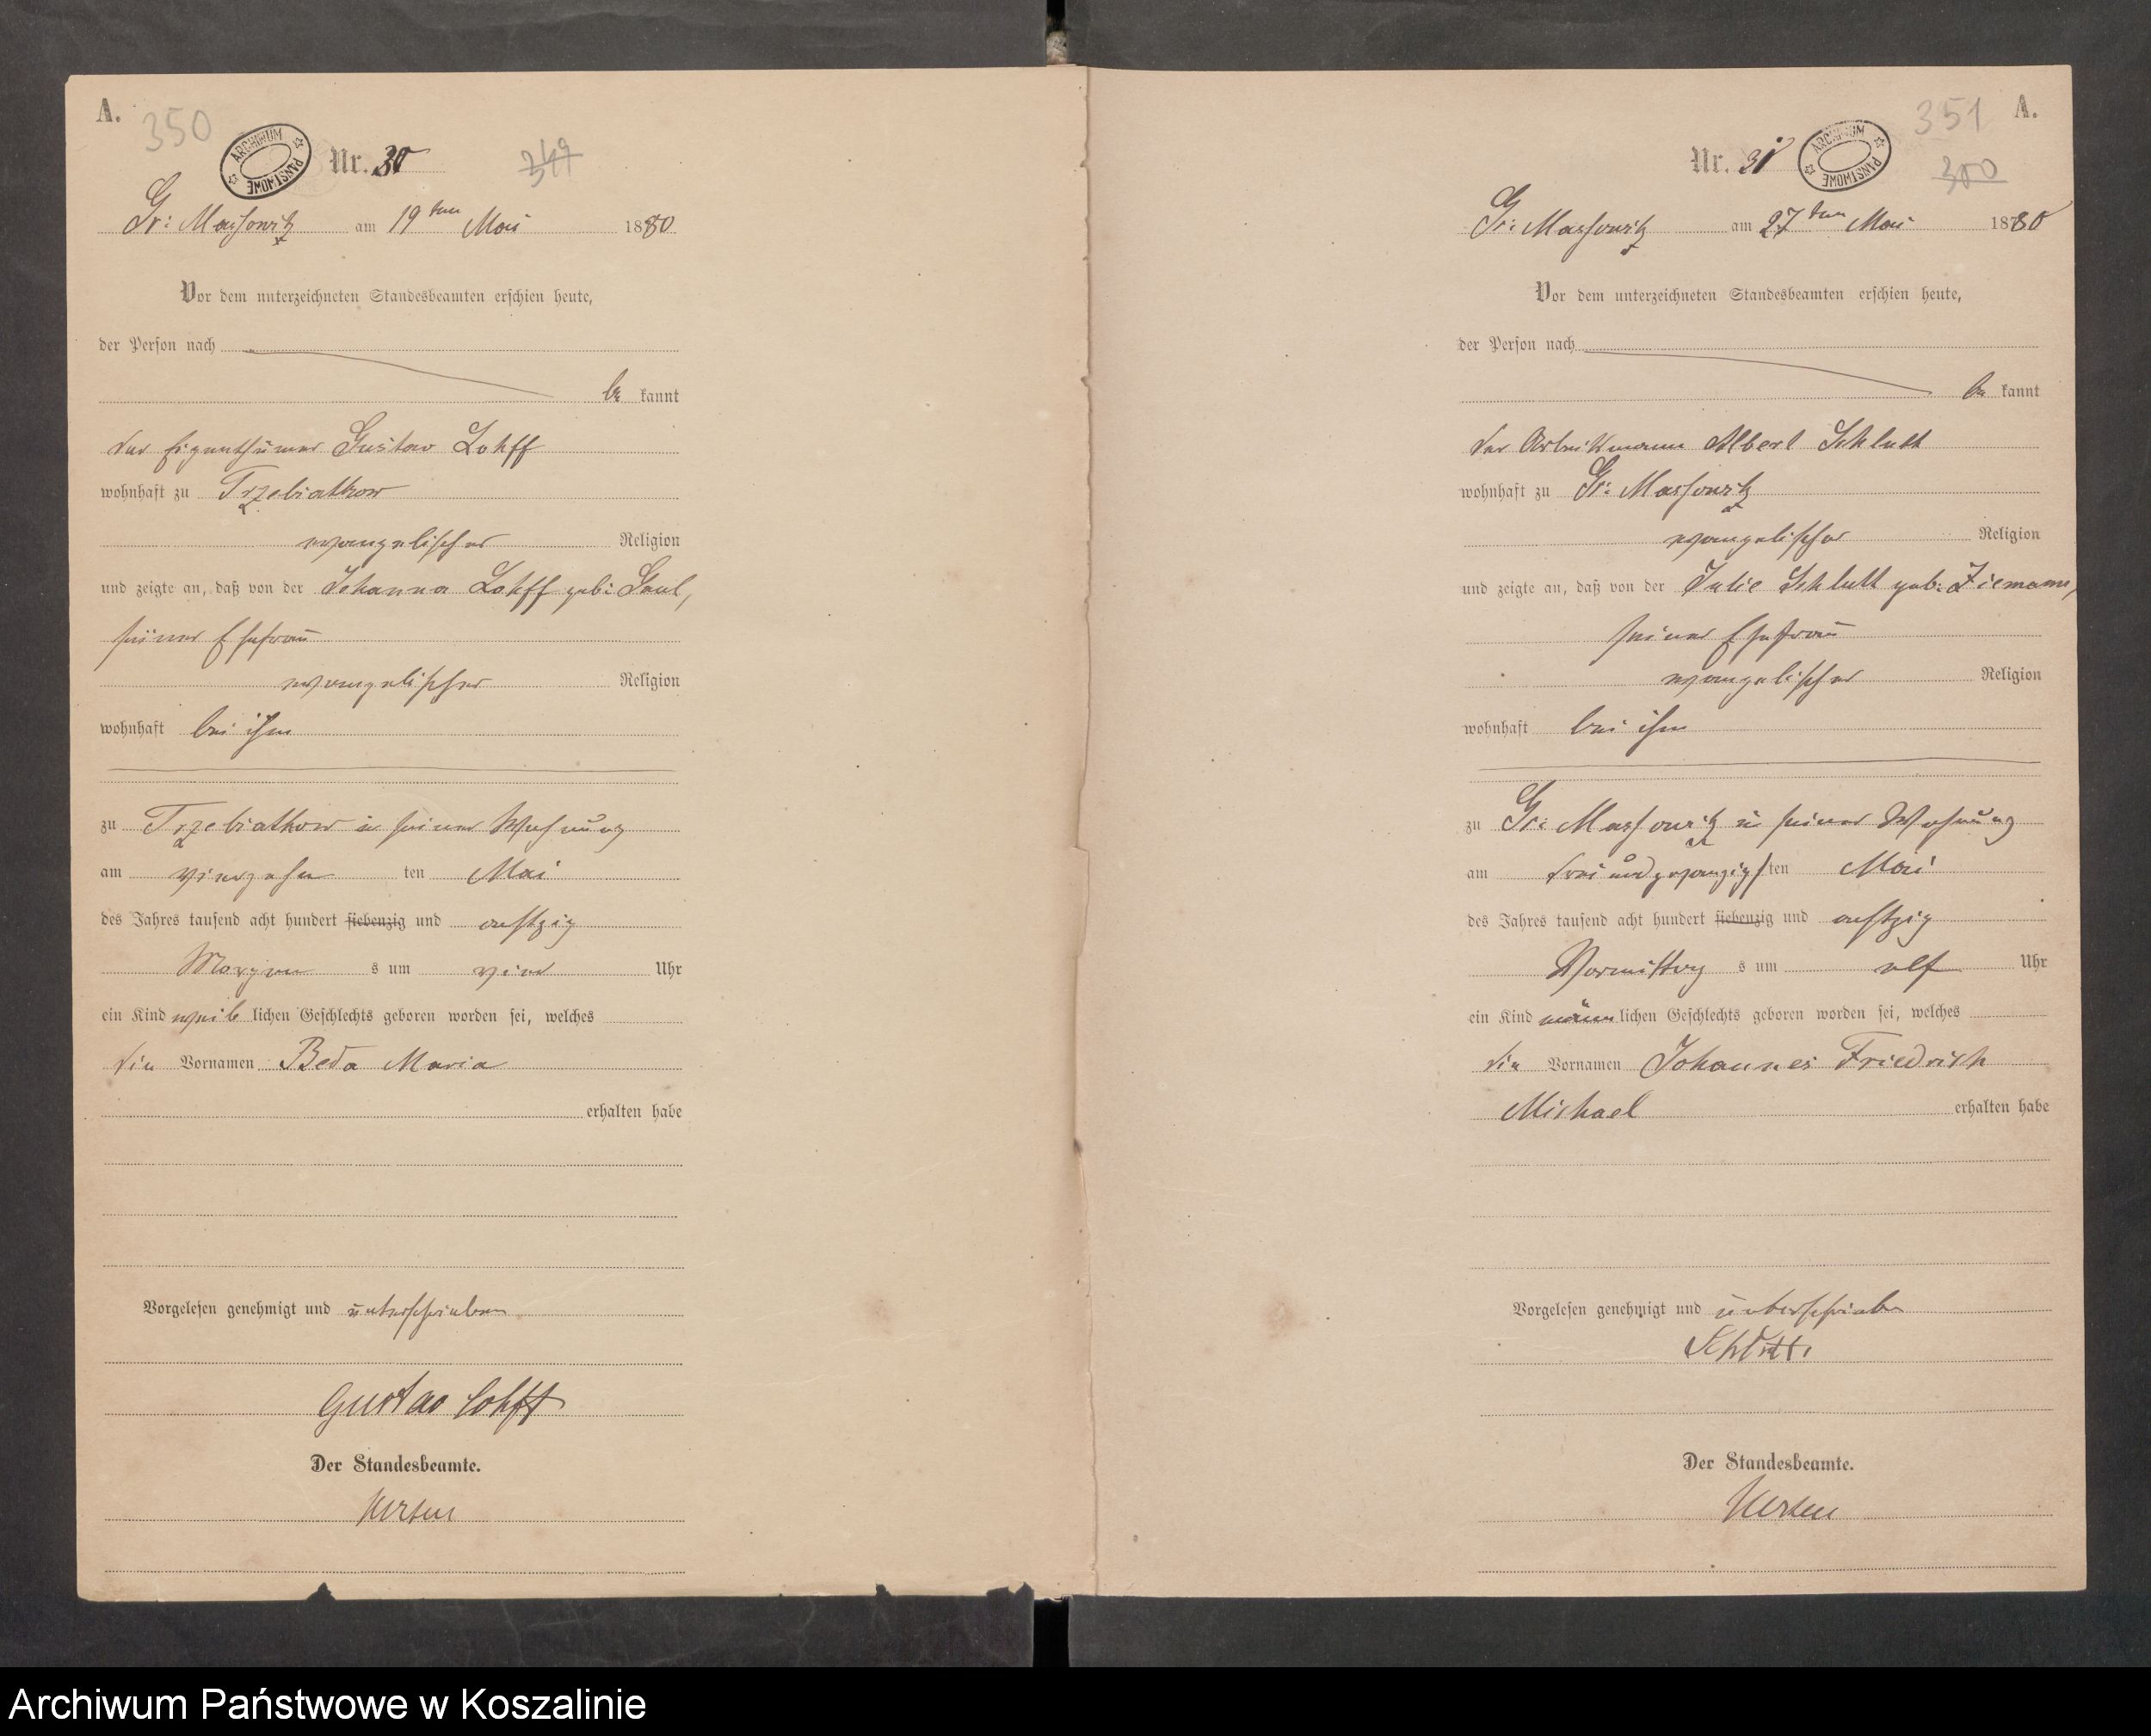 A.
350
ARCHIWUM PAŃSTWOWE
Nr. 30
349
Gr: Massowitz am 19ten Mai 1880
Vor dem unterzeichneten Standesbeamten erschien heute,
der Person nach
be kannt
der Eigenthümer Gustav Lohff
wohnhaft zu Trzebiatkow
evangelischer Religion
und zeigte an, daß von der Johanna Lohff geb: Saul,
seiner Ehefrau
evangelischer Religion
wohnhaft bei ihm
zu Trzebiatkow in seiner Wohnung
am vierzehn ten Mai
des Jahres tausend acht hundert siebenzig und achtzig
Morgens um vier Uhr
ein Kind weib lichen Geschlechts geboren worden sei, welches
die Vornamen Beda Maria
erhalten habe
Vorgelesen genehmigt und unterschrieben
Gustav Lohff
Der Standesbeamte.
A.
351
ARCHIWUM PAŃSTWOWE
Nr. 31
350
Gr: Massowitz am 27ten Mai 1880
Vor dem unterzeichneten Standesbeamten erschien heute,
der Person nach
be kannt
der Arbeitsmann Albert Schlutt
wohnhaft zu Gr: Massowitz
evangelischer Religion
und zeigte an, daß von der Julie Schlutt geb: Ziemann,
seiner Ehefrau
evangelischer Religion
wohnhaft bei ihm
zu Gr: Massowitz in seiner Wohnung
am drei und zwanzigsten Mai
des Jahres tausend acht hundert siebenzig und achtzig
Vormittags um elf Uhr
ein Kind männlichen Geschlechts geboren worden sei, welches
die Vornamen Johannes Friedrich
Michael erhalten habe
Vorgelesen genehmigt und unterschrieben
Der Standesbeamte.
Archiwum Państwowe w Koszalinie